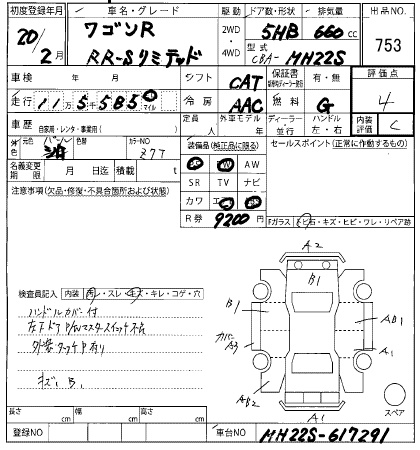 初度登録年月 車名・グレード 駆動 ドア数・形状 排気量 出品NO.
20/2月 ワゴンR RR-Sリミテッド 2WD・4WD 5HB 660cc 753
型式 CBA- MH22S
車検 年 月 シフト CAT 保証書 有・無 評価点
走行 11万5千585 マイル 冷房 AAC 燃料 G 4
車歴 自家用・レンタ・事業用( ) 定員 人 外車モデル 年 ディーラー・並行 ハンドル 左・右 内装評価 C
外色 元色 色替 カラーNO Z77 装備品(純正品に限る) セールスポイント(正常に作動するもの)
AW
名義変更期限 月 日迄 積載 t SR TV ナビ
注意事項(欠品・修復・不具合箇所および状態) カワ
R券 9200円 Fガラス 石・キズ・ヒビ・ワレ・リペア跡
A2
B1
検査員記入 内装 スレ・キズ・キレ・コゲ・穴
ハンドルカバー付 B1 AB1
左下ドア P/Wマスタースイッチ不良 カバー A3 A1
外装タッチP有り
キズ、B、 AB2 スペア
A1
長さ cm 幅 cm 高さ cm
登録NO 車台NO MH22S-617291